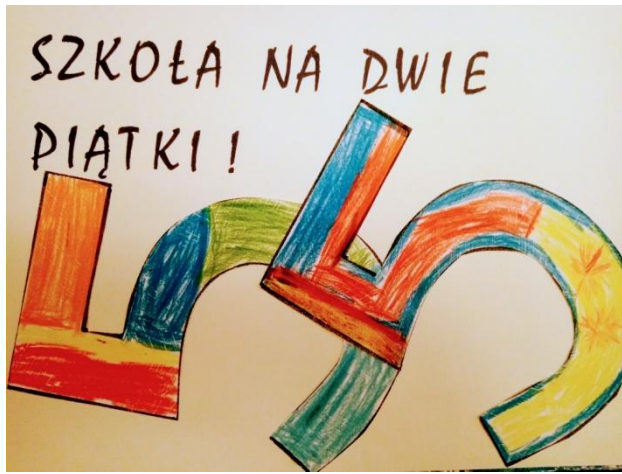 SZKOŁA NA DWIE
PIĄTKI!
55